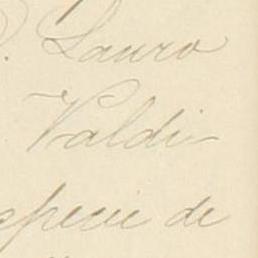 D. Lauro
Valdi-
especie de